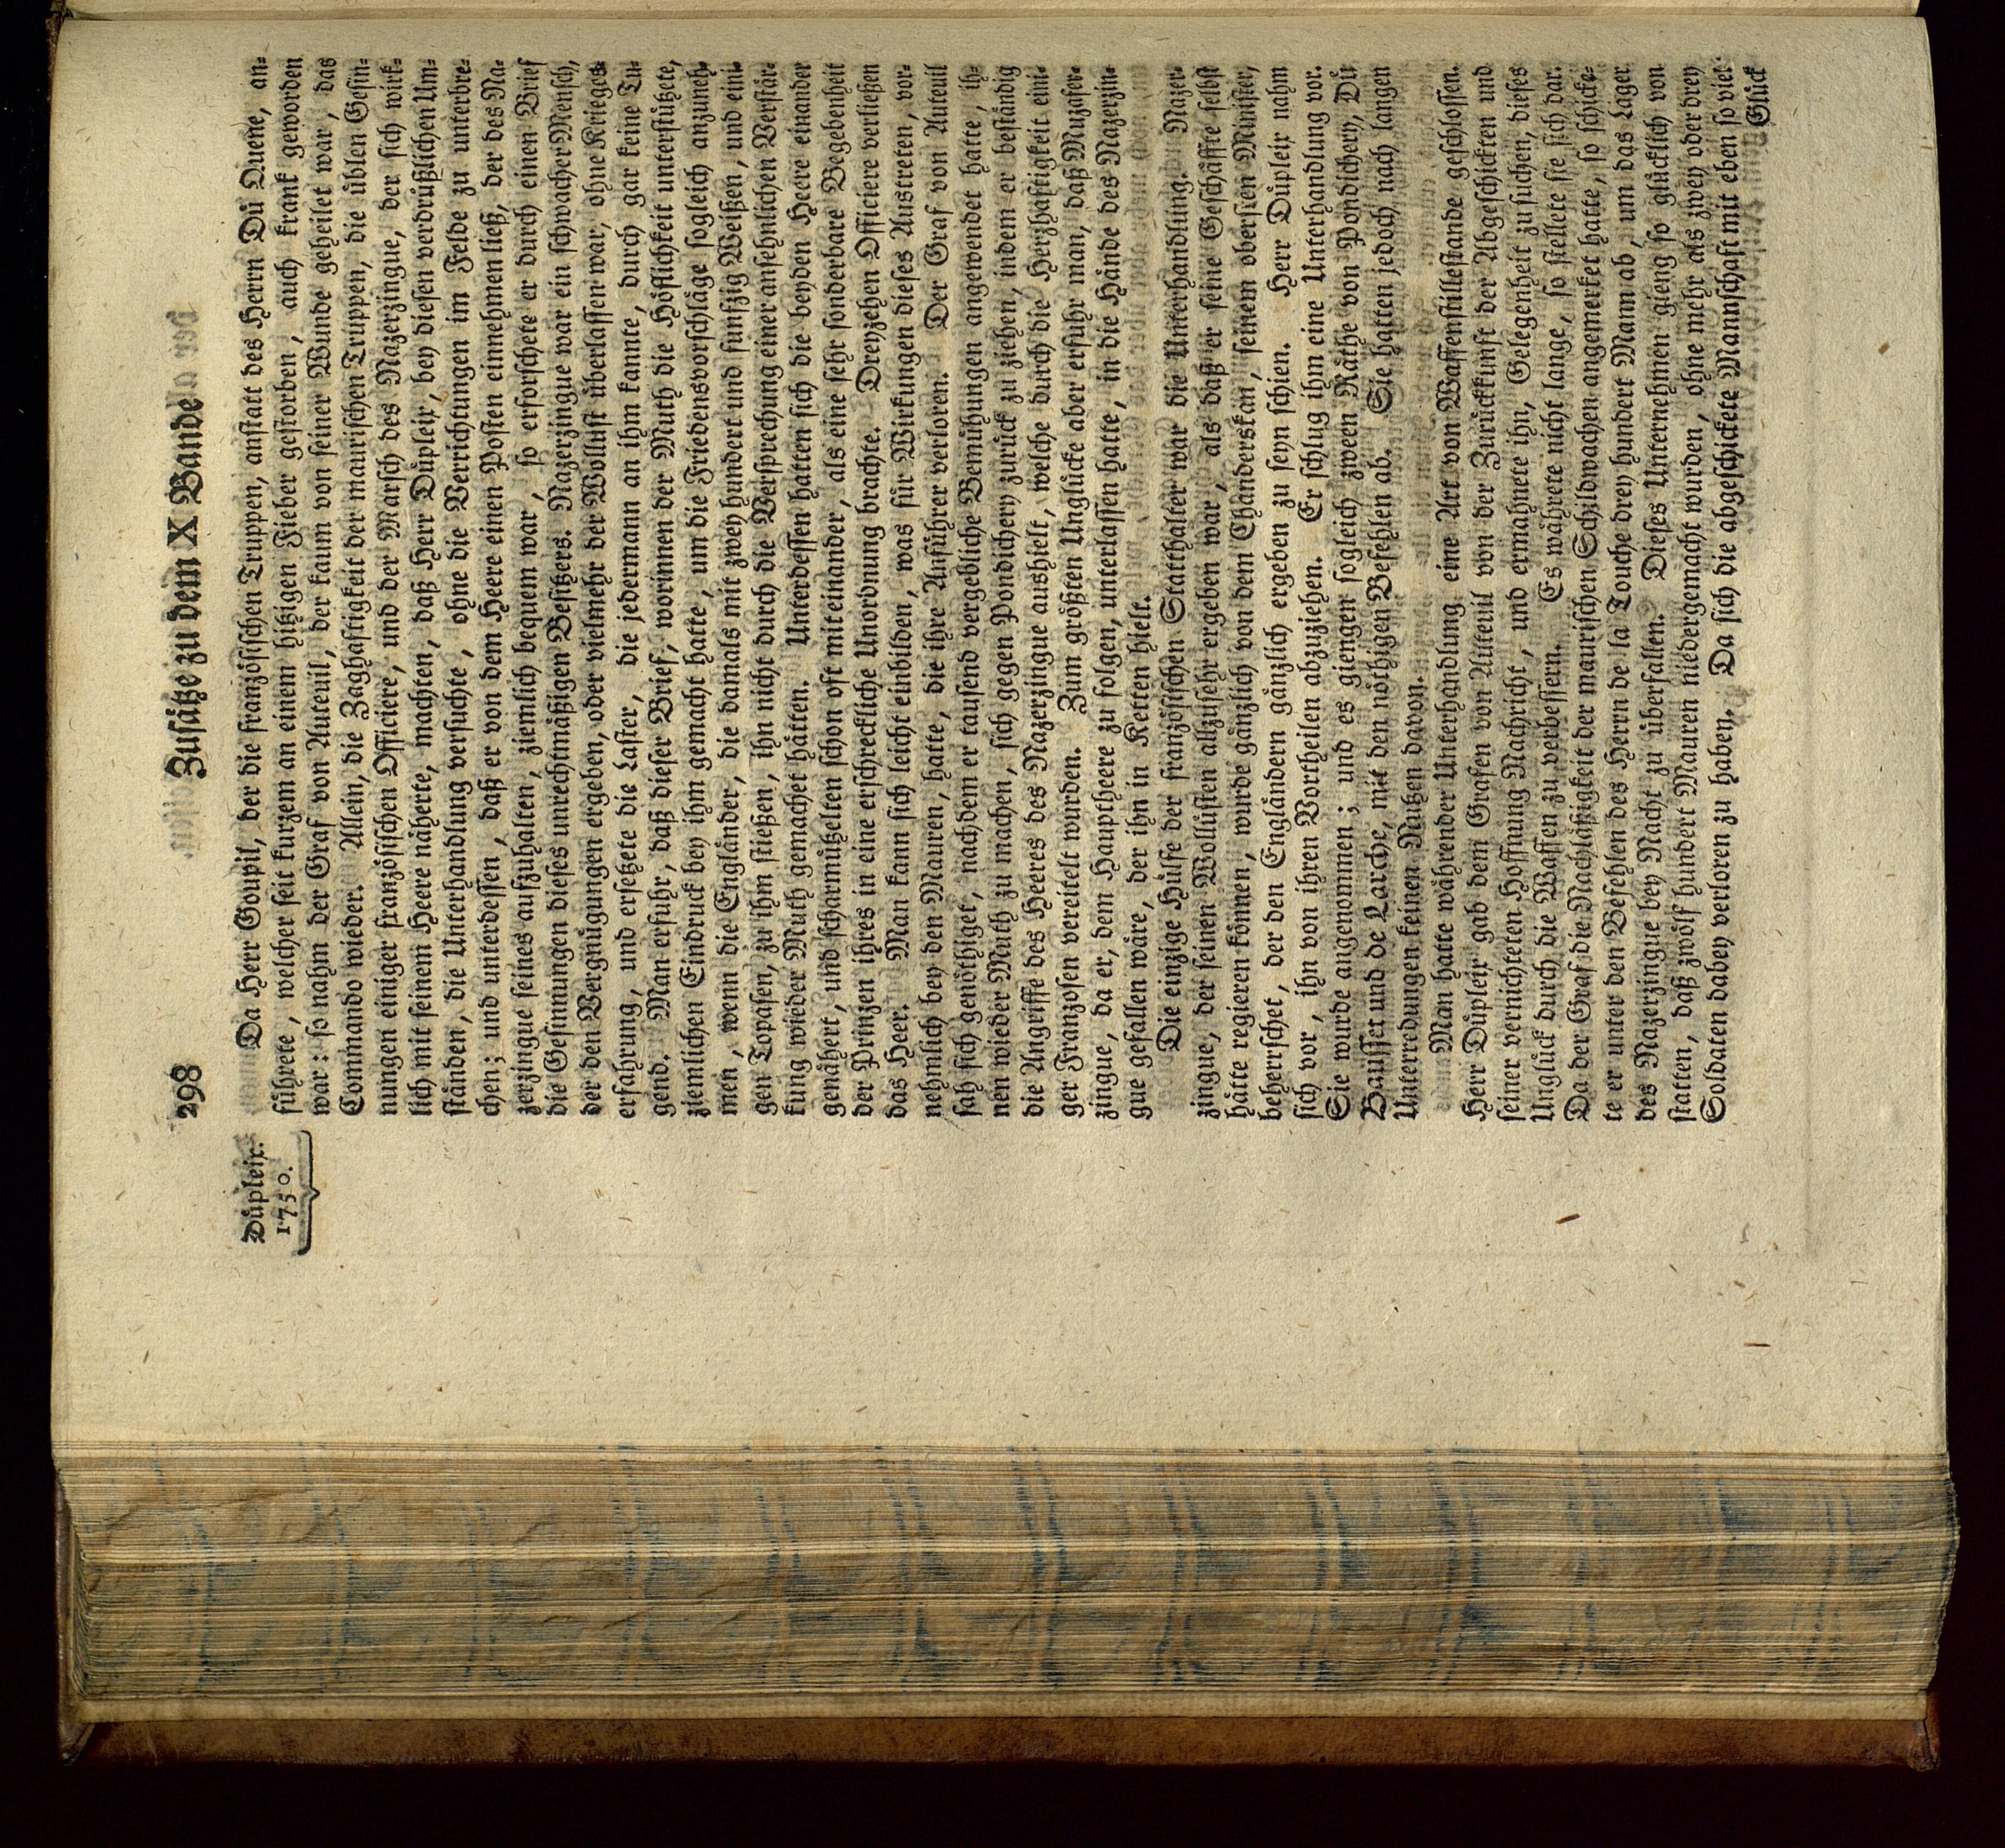 298 Zusätze zu dem X Bande
Düpleix.
1750.
Da Herr Goupil, der die französischen Truppen, anstatt des Herrn Dü Quene, an-
führete, welcher seit kurzem an einem hitzigen Fieber gestorben, auch krank geworden
war: so nahm der Graf von Auteuil, der kaum von seiner Wunde geheilet war, das
Commando wieder. Allein, die Zaghaftigkeit der maurischen Truppen, die üblen Gesin-
nungen einiger französischen Officiere, und der Marsch des Nazerzingue, der sich wirk-
lich mit seinem Heere näherte, machten, daß Herr Düpleix, bey diesen verdrüßlichen Um-
ständen, die Unterhandlung versuchte, ohne die Verrichtungen im Felde zu unterbre-
chen; und unterdessen, daß er von dem Heere einen Posten einnehmen ließ, der des Na-
zerzingue seines aufzuhalten, ziemlich bequem war, so erforschete er durch einen Brief
die Gesinnungen dieses unrechtmäßigen Besitzers. Nazerzingue war ein schwacher Mensch,
der den Vergnügungen ergeben, oder vielmehr der Wollust überlassen war, ohne Krieges-
erfahrung, und ersetzete die Laster, die jedermann an ihm kannte, durch gar keine Tu-
gend. Man erfuhr, daß dieser Brief, worinnen der Muth die Höflichkeit unterstützete,
ziemlichen Eindruck bey ihm gemacht hatte, um die Friedensvorschläge sogleich anzuneh-
men, wenn die Engländer, die damals mit zweyhundert und funfzig Weißen, und eini-
gen Topasen, zu ihm stießen, ihn nicht durch die Versprechung einer ansehnlichen Verstär-
kung wieder Muth gemachet hätten. Unterdessen hatten sich die beyden Heere einander
genähert, und scharmützelten schon oft mit einander, als eine sehr sonderbare Begebenheit
der Prinzen ihres in eine erschreckliche Unordnung brachte. Dreyzehen Officiere verließen
das Heer. Man kann sich leicht einbilden, was für Wirkungen dieses Austreten, vor-
nehmlich bey den Mauren, hatte, die ihre Anführer verloren. Der Graf von Auteuil
sah sich genöthiget, nachdem er tausend vergebliche Bemühungen angewendet hatte, ih-
nen wieder Muth zu machen, sich gegen Pondichery zurück zu ziehen, indem er beständig
die Angriffe des Heeres des Nazerzingue aushielt, welche durch die Herzhaftigkeit eini-
ger Franzosen vereitelt wurden. Zum größten Unglücke aber erfuhr man, daß Muzafer-
zingue, da er, dem Hauptheere zu folgen, unterlassen hatte, in die Hände des Nazerzin-
gue gefallen wäre, der ihn in Ketten hielt.
Die einzige Hülfe der französischen Statthalter war die Unterhandlung. Nazer-
zingue, der seinen Wollüsten allzusehr ergeben war, als daß er seine Geschäffte selbst
hätte regieren können, wurde gänzlich von dem Chänderskan, seinem obersen Minister,
beherrschet, der den Engländern gänzlich ergeben zu seyn schien. Herr Düpleix nahm
sich vor, ihn von ihren Vortheilen abzuziehen. Er schlug ihm eine Unterhandlung vor.
Sie wurde angenommen; und es giengen sogleich zween Räthe von Pondichery, Dü
Bausset und de Larche, mit den nöthigen Befehlen ab. Sie hatten jedoch nach langen
Unterredungen keinen Nutzen davon.
Man hatte währender Unterhandlung eine Art von Waffenstillestande geschlossen.
Herr Düpleix gab dem Grafen von Auteuil von der Zurückkunft der Abgeschickten und
seiner vernichteten Hoffnung Nachricht, und ermahnete ihn, Gelegenheit zu suchen, dieses
Unglück durch die Waffen zu verbessern. Es währete nicht lange, so stellete sie sich dar.
Da der Graf die Nachläßigkeit der maurischen Schildwachen angemerket hatte, so schicke-
te er unter den Befehlen des Herrn de la Touche drey hundert Mann ab, um das Lager
des Nazerzingue bey Nacht zu überfallen. Dieses Unternehmen gieng so glücklich von
statten, daß zwölf hundert Mauren niedergemacht wurden, ohne mehr als zwey oder drey
Soldaten dabey verloren zu haben. Da sich die abgeschickete Mannschaft mit eben so viel
Glück